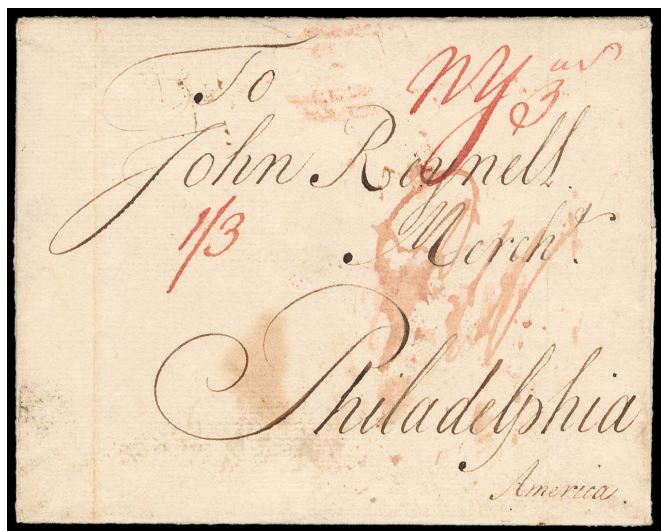 To
NY 3
John Reynell
1/3
Merch.t
Philadelphia
America.